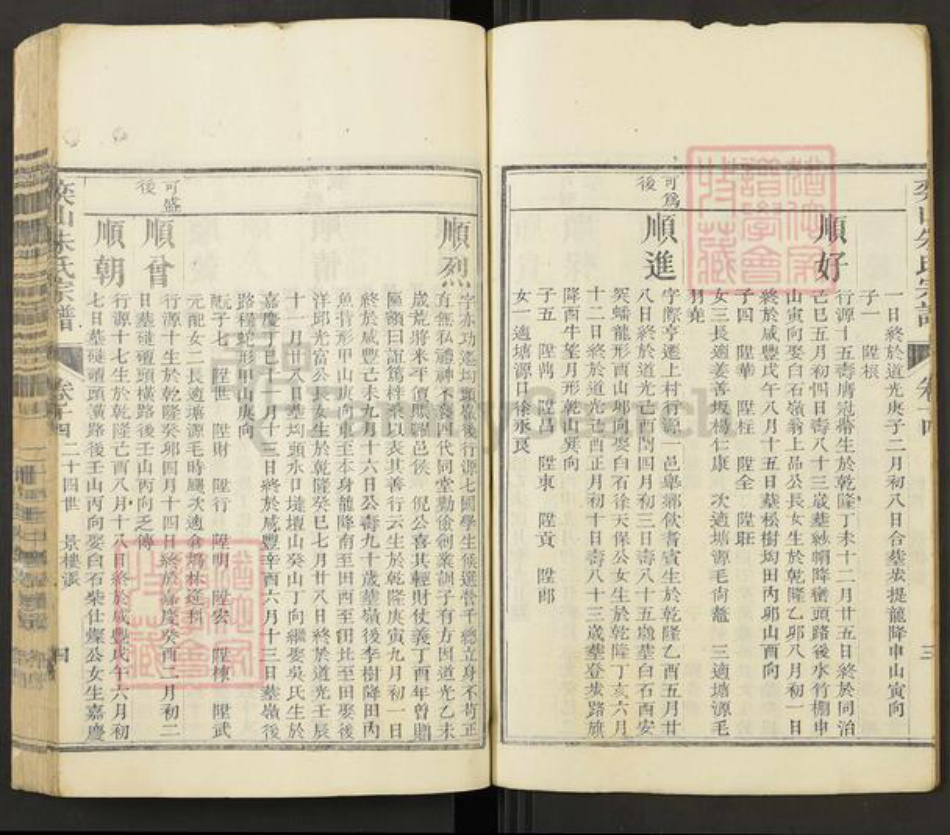 一日終於道光庚子二月初八日合墓岺提龍降申山寅向
子一 陞根
順好
行源十五壽膺冠帶生於乾隆丁未十二月廿五日終於同治
己巳五月初四日壽八十三歲墓紗帽降巒頭路後水竹棚申
山寅向娶白石嶺翁上品公長女生於乾隆乙卯八月初一日
終於咸豐戊午八月十五日墓松樹均田丙卯山酉向
子四 陞華 陞柱 陞全 陞旺
女三長適姜善坂楊仁康 次適塘源毛尚鰲 三適塘源毛
可為後
順進
字際亨遷上村行源一邑舉鄉飲耆賓生於乾隆乙酉五月廿
八日終於道光己酉閏四月初三日壽八十五歲墓白石西安
蟠龍形酉山卯向娶白石徐天保公女生於乾隆丁亥六月
十二日終於道光己酉正月初十日壽八十三歲墓登岺路旗
降酉牛荃月形乾山巽向
子五 陞鴻 陞昌 陞東 陞貢 陞郎
女一適塘源口徐永良
奕山朱氏宗譜 卷十四 三
順烈
字亦功遷均頭嶺後行源七國學生候選營千總立身不苟正
直無私禮神不喜四代同堂勤儉創業訓子有方因道光乙未
歲荒將米平價賑糶邑侯 倪公喜其輕財使義丁酉年曾贈
匾額曰誼篤梓桑以表其善行云生於乾隆庚寅九月初一日
終於咸豐己未九月十六日公壽九十歲墓嶺後李樹降田內
魚背形甲山庚向東至本身龍降南至田西至田北至田娶後
洋邱光富公長女生於乾隆癸巳七月廿八日終於道光壬辰
十一月廿八日墓均頭水口墶壇山癸山丁向繼娶吳氏生於
嘉慶丁巳十一月十三日終於咸豐辛酉六月十三日墓嶺後
路程蛇形甲山庚向
子七 陞世 陞財 陞行 陞明 陞宏 陞棟 陞武
元配女二長適塘源毛時颺次適倉塢林廷
可盛後
順曾
行源十生於乾隆癸卯四月十四日終於嘉慶癸酉二月初二
日墓磓磧頭橫路後壬山丙向乏傳
順朝
行源十七生於乾隆己酉八月十八日終於咸豐戊午六月初
七日墓磓磧頭橫路後壬山丙向娶白石柴仕燦公女生嘉慶
奕山朱氏宗譜 卷十四 二十四世 景樓派 四
FamilySearch